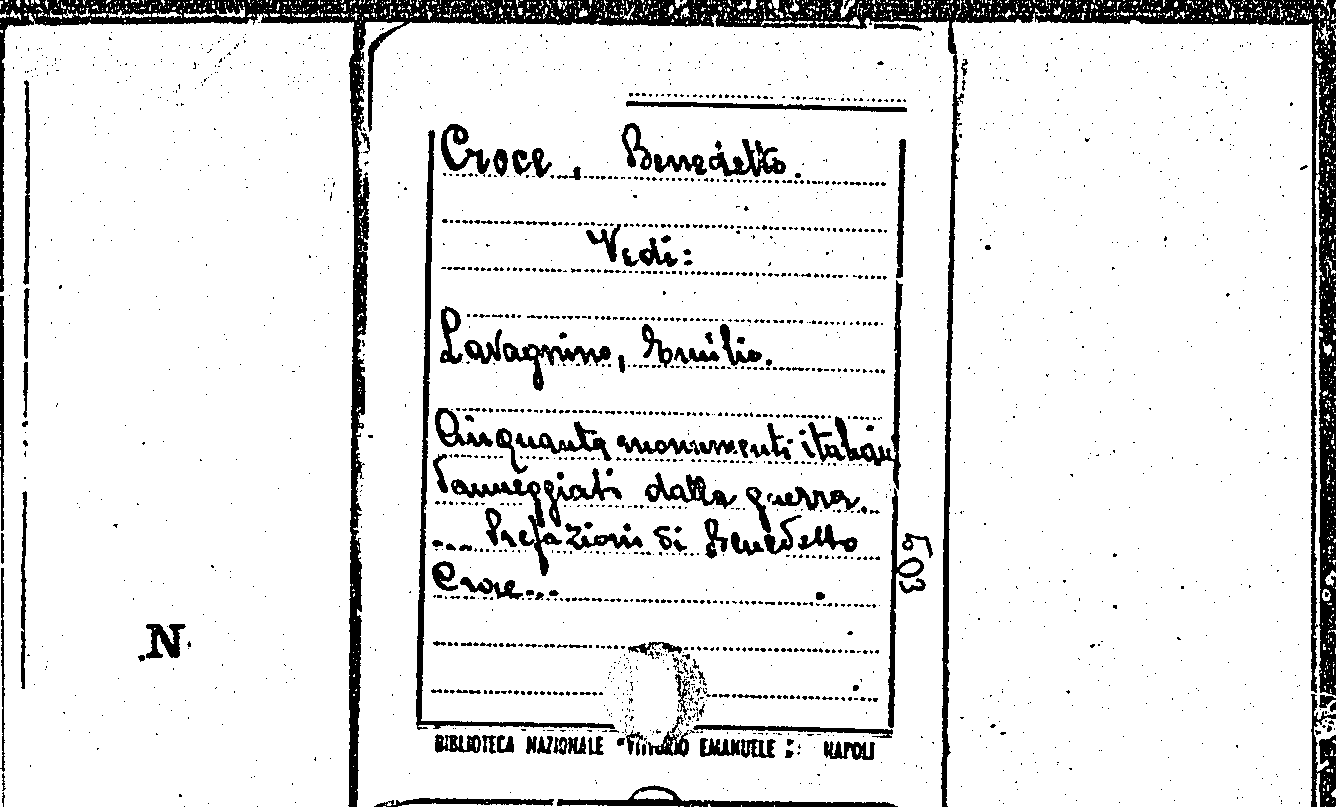 Croce, Benedetto.
Vedi:
Lavagnino, Emilio.
Cinquanta monumenti italiani
danneggiati dalla guerra.
... Prefazioni di Benedetto
Croce...
503
.N.
BIBLIOTECA NAZIONALE "VITTORIO EMANUELE : NAPOLI